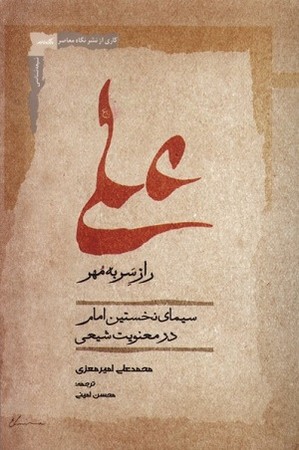 کاری از نشر نگاه معاصر
علی
راز سَر به مُهر
سیمای نخستین امام
در معنویت شیعی
محمدعلی امیرمعزی
ترجمه:
محسن امینی